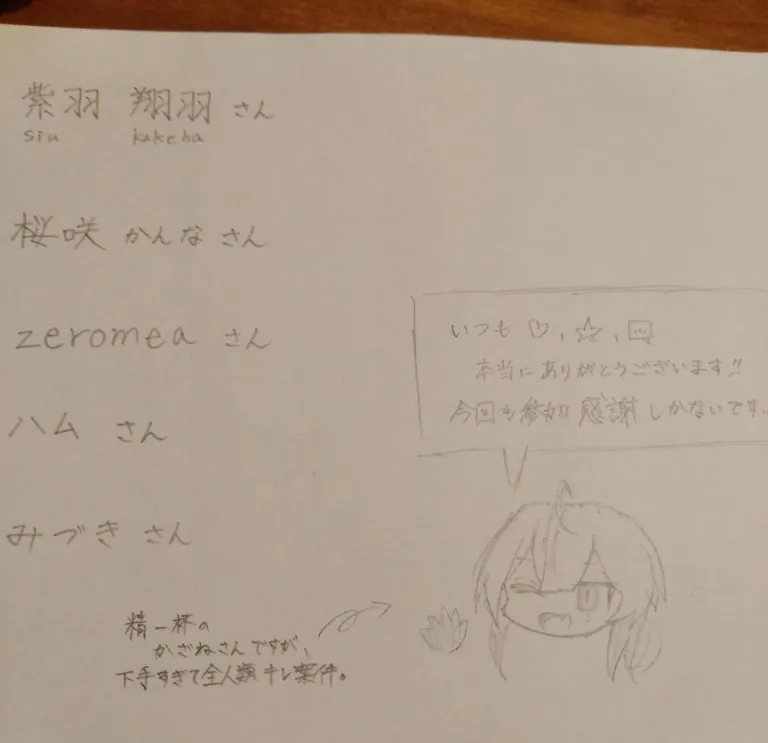 紫羽 翔羽 さん
siu kakeha
桜咲 かんな さん
zeromea さん
ハム さん
みづき さん
いつも ♡, ☆,
本当にありがとうございます!!
今回も参加 感謝しかないです。
精一杯の
かざねさんですが、
下手すぎて全人類キレ案件。